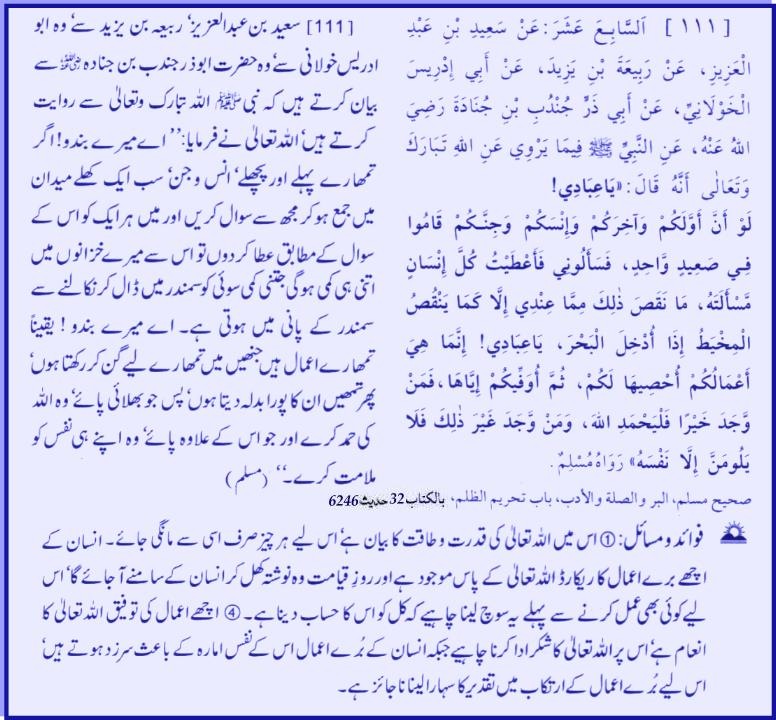 [ ١١١ ] اَلسَّابِعَ عَشَرَ: عَنْ سَعِيدِ بْنِ عَبْدِ
الْعَزِيزِ، عَنْ رَبِيعَةَ بْنِ يَزِيدَ، عَنْ أَبِي إِدْرِيسَ
الْخَوْلَانِيِّ، عَنْ أَبِي ذَرٍّ جُنْدُبِ بْنِ جُنَادَةَ رَضِيَ
اللهُ عَنْهُ، عَنِ النَّبِيِّ ﷺ فِيمَا يَرْوِي عَنِ اللهِ تَبَارَكَ
وَتَعَالَى أَنَّهُ قَالَ: «يَاعِبَادِي!
لَوْ أَنَّ أَوَّلَكُمْ وَآخِرَكُمْ وَإِنْسَكُمْ وَجِنَّكُمْ قَامُوا
فِي صَعِيدٍ وَّاحِدٍ، فَسَأَلُونِي فَأَعْطَيْتُ كُلَّ إِنْسَانٍ
مَّسْأَلَتَهُ، مَا نَقَصَ ذٰلِكَ مِمَّا عِنْدِي إِلَّا كَمَا يَنْقُصُ
الْمِخْيَطُ إِذَا أُدْخِلَ الْبَحْرَ، يَاعِبَادِي! إِنَّمَا هِيَ
أَعْمَالُكُمْ أُحْصِيهَا لَكُمْ، ثُمَّ أُوَفِّيكُمْ إِيَّاهَا، فَمَنْ
وَّجَدَ خَيْرًا فَلْيَحْمَدِ اللهَ، وَمَنْ وَّجَدَ غَيْرَ ذٰلِكَ فَلَا
يَلُومَنَّ إِلَّا نَفْسَهُ» رَوَاهُ مُسْلِمٌ.
[111] سعید بن عبدالعزیز' ربیعہ بن یزید سے' وہ ابو
ادریس خولانی سے' وہ حضرت ابوذر جندب بن جنادہ رضی اللہ عنہ سے
بیان کرتے ہیں کہ نبی ﷺ اللہ تبارک وتعالیٰ سے روایت
کرتے ہیں' اللہ تعالیٰ نے فرمایا: ''اے میرے بندو! اگر
تمھارے پہلے اور پچھلے' انس و جن' سب ایک کھلے میدان
میں جمع ہو کر مجھ سے سوال کریں اور میں ہر ایک کو اس کے
سوال کے مطابق عطا کر دوں تو اس سے میرے خزانوں میں
اتنی ہی کمی ہو گی جتنی کمی سوئی کو سمندر میں ڈال کر نکالنے سے
سمندر کے پانی میں ہوتی ہے۔ اے میرے بندو! یقیناً
تمھارے اعمال ہیں جنھیں میں تمھارے لیے گن کر رکھتا ہوں'
پھر تمھیں ان کا پورا بدلہ دیتا ہوں' پس جو بھلائی پائے' وہ اللہ
کی حمد کرے اور جو اس کے علاوہ پائے' وہ اپنے ہی نفس کو
ملامت کرے۔'' (مسلم)
صحيح مسلم، البر والصلة والأدب، باب تحريم الظلم، بالكتاب32 حديث6246
فوائد ومسائل: ① اس میں اللہ تعالیٰ کی قدرت و طاقت کا بیان ہے' اس لیے ہر چیز صرف اسی سے مانگی جائے۔ انسان کے
اچھے برے اعمال کا ریکارڈ اللہ تعالیٰ کے پاس موجود ہے اور روزِ قیامت وہ نوشتہ کھل کر انسان کے سامنے آ جائے گا' اس
لیے کوئی بھی عمل کرنے سے پہلے یہ سوچ لینا چاہیے کہ کل کو اس کا حساب دینا ہے۔ ④ اچھے اعمال کی توفیق اللہ تعالیٰ کا
انعام ہے' اس پر اللہ تعالیٰ کا شکر ادا کرنا چاہیے جبکہ انسان کے بُرے اعمال اس کے نفس امارہ کے باعث سرزد ہوتے ہیں'
اس لیے بُرے اعمال کے ارتکاب میں تقدیر کا سہارا لینا ناجائز ہے۔